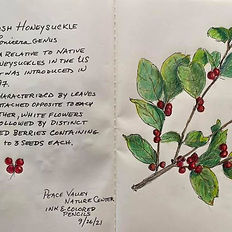 OSH HONEYSUCKLE
LONICERA GENUS
A RELATIVE TO NATIVE
NEYSUCKLES IN THE US
WAS INTRODUCED IN
97.
CHARACTERIZED BY LEAVES
TTACHED OPPOSITE TO EACH
THER, WHITE FLOWERS
OLLOWED BY DISTINCT
ED BERRIES CONTAINING
TO 3 SEEDS EACH.
PEACE VALLEY
NATURE CENTER
INK & COLORED
PENCILS
9/26/21